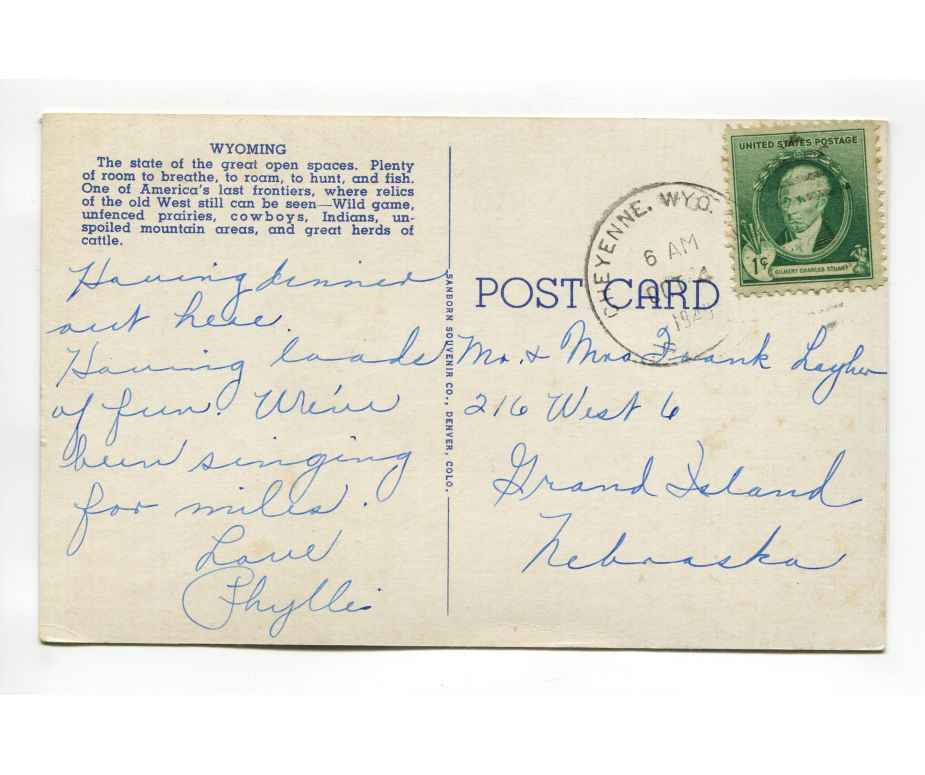 WYOMING
The state of the great open spaces. Plenty
of room to breathe, to roam, to hunt, and fish.
One of America's last frontiers, where relics
of the old West still can be seen—Wild game,
unfenced prairies, cowboys, Indians, un-
spoiled mountain areas, and great herds of
cattle.
Having dinner
out here.
Having loads
of fun. We've
been singing
for miles.
Love
Phyllis
SANBORN SOUVENIR CO., DENVER, COLO.
UNITED STATES POSTAGE
1¢
GILBERT CHARLES STUART
CHEYENNE. WYO.
6 AM
POST CARD
Mr. & Mrs. Frank Layher
216 West 6
Grand Island
Nebraska